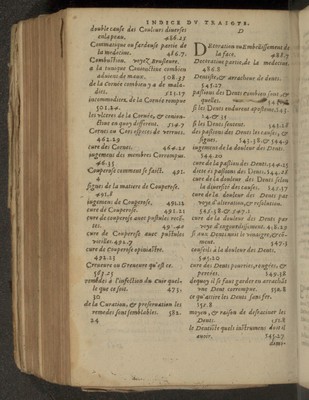 INDICE DV TRAICTE.
double cause des Couleurs diverses
en la peau. 486.23
Cosmatique ou fardeuse partie de
la medecine. 486.7.
Combustion. voyez Brusleure.
a la tunique Conionctive combien
advient de maux. 508.37
de la Cornée combien y a de mala-
dies. 515.17
incommoditez, de la Cornée rompue
501.24.
les ulceres de la Cornée, & conion-
ctive en quoy different.
Cornes ou Cors especes de verrues.
462.29
cure des Cornes. 464.12
jugement des membres Corrompus.
46.35
Couperose comment se faict. 491.
4
signes de la matiere de Couperose.
491.8
jugement de Couperose. 491.12
cure de Couperose. 491.21
cure de couperose avec pustules rece-
tes.
cure de Couperose avec pustules
vieilles. 492.9
cure de Couperose opiniastre.
492.23
Creveure ou Greveure qu'est ce.
563.25
remedes a l'infection du Cuir quel-
le que ce soit. 473.
30
de la Curation, & preservation les
remedes sont semblables. 582.
24
D
Decoration ou Embellissement de
la face. 486.7
Decoratiue partie de la medecine.
486.8
Dentiste, & arracheur de dents.
545.27
passions des Dents combien sont, &
quelles.
si les Dents endurent apostume. 543.
24. & 35
si les Dents sentent. 543.28
des passions des Dents les causes, &
signes. 543.38. & 544.9
jugement de la douleur des Dents.
544.20
cure de la passion des Dents. 544.25
diete es passions des Dents. 544.28
cure de la douleur des Dents selon
la diversité des causes. 545.37
cure de la douleur des Dents par
voye d'alteration, & resolution.
546.38. & 547.1
cure de la douleur des Dents par
voye d'engourdissement. 548.22
si aux Dents sont le vinaigre, & ci-
ment. 547.3
conseils a la douleur des Dents.
545.20
cure des Dents pourries, rongées, &
percées. 549.38
dequoy il se faut garder en arrachāt
une Dent corrompue. 550.8
ce qu'attire les Dents sans fer.
551.8
moyen, & raison de desraciner les
Dents. 551.8
le Dentiste quels instrumens doit il
avoir. 545.27
dents-